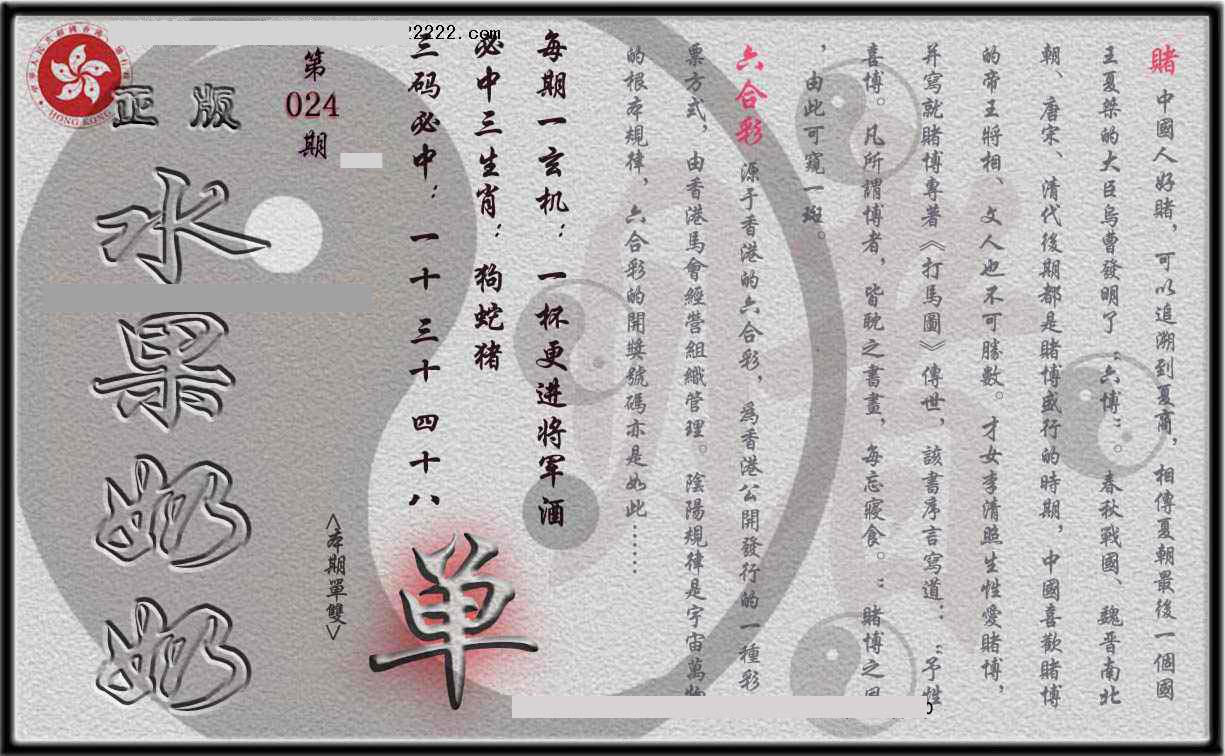 賭 中國人好賭，可以追溯到夏商，相傳夏朝最後一個國
王夏桀的大臣烏曹發明了“六博”。春秋戰國、魏晋南北
朝、唐宋、清代後期都是賭博盛行的時期，中國喜歡賭博
的帝王將相、文人也不可勝數。才女李清照生性愛賭博，
并寫就賭博專著《打馬圖》傳世，該書序言寫道：“予性
喜博。凡所謂博者，皆耽之晝，每忘寢食。”賭博之風
，由此可窺一斑。
六合彩 源于香港的六合彩，爲香港公開發行的一種彩
票方式，由香港馬會經營組織管理。陰陽規律是宇宙萬物
的根本規律，六合彩的開獎號碼亦是如此……
每期一玄机：一杯更进将军酒
必中三生肖：狗蛇猪
三码必中：一十 三十 四十八
2222.com
第
024
期
正版
水果奶奶
<本期單雙>
单
HONG KONG